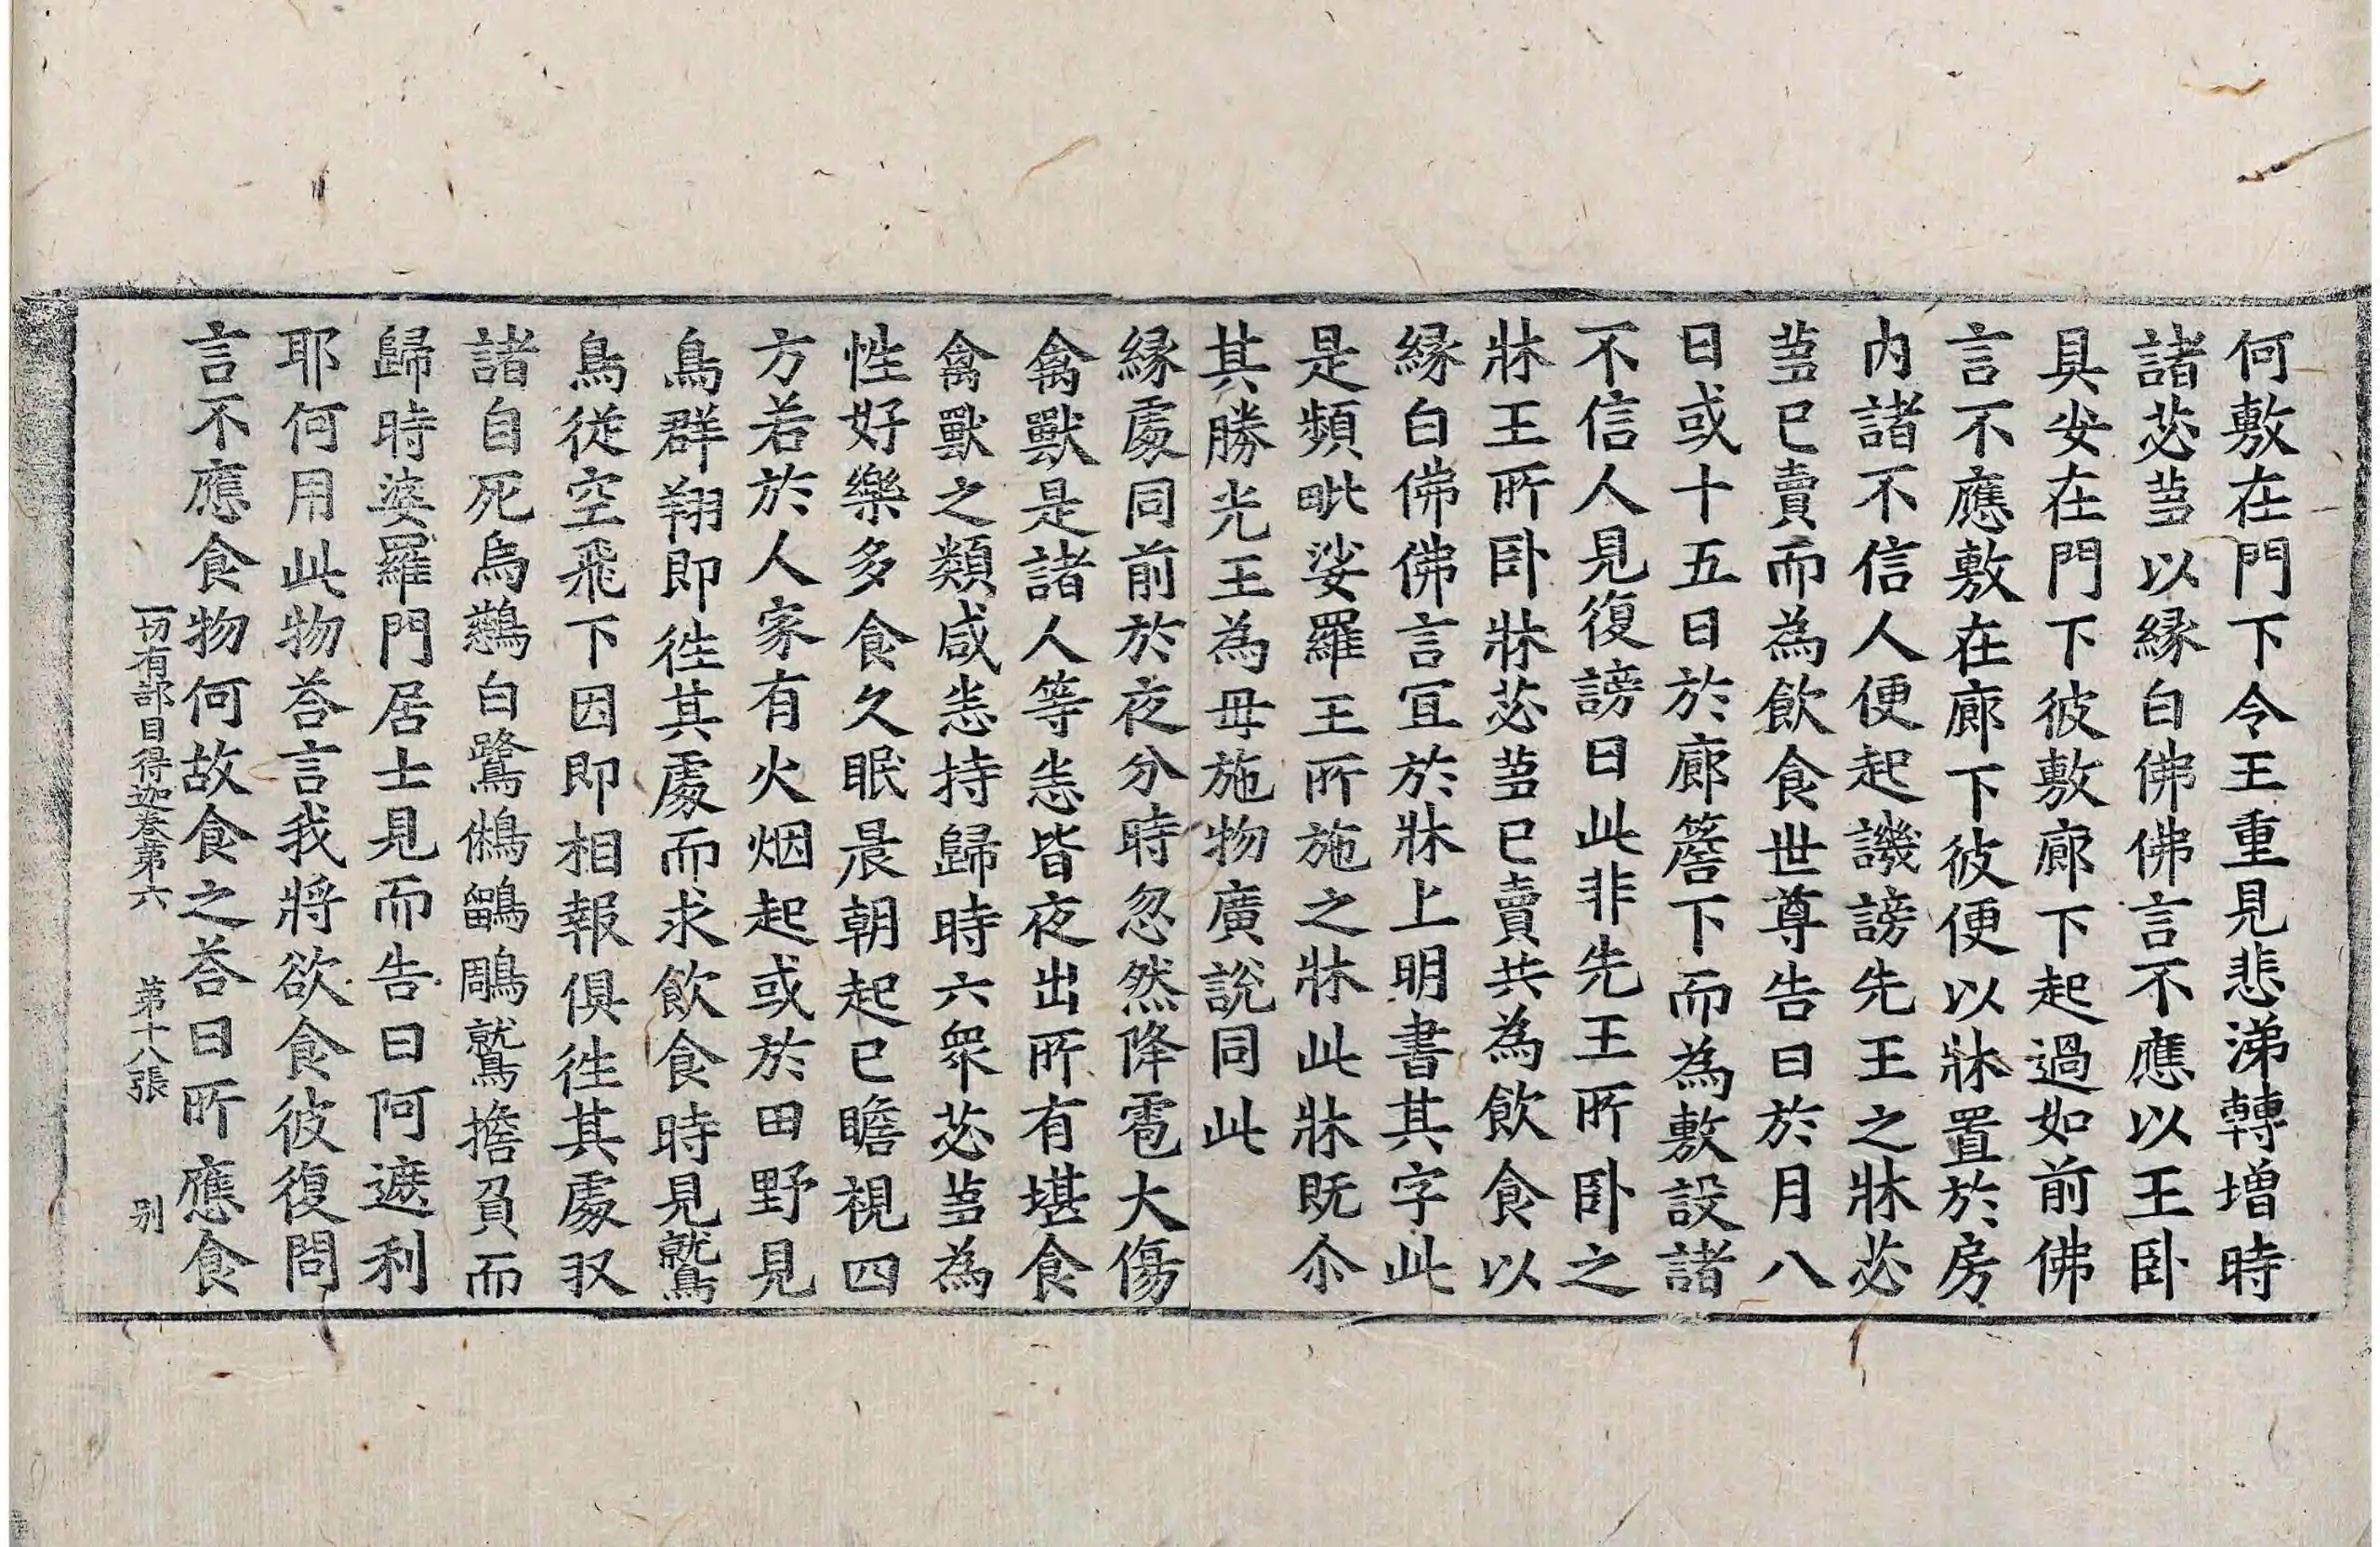 何敷在門下令王重見悲涕轉增時
諸苾蒭以縁白佛佛言不應以王卧
具安在門下彼敷廊下起過如前佛
言不應敷在廊下彼便以牀置於房
内諸不信人便起譏謗先王之牀苾
蒭已賣而為飲食世尊告曰於月八
日或十五日於廊簷下而為敷設諸
不信人見復謗曰此非先王所卧之
牀王所卧牀苾蒭已賣共為飲食以
縁白佛佛言宜於牀上明書其字此
是頻毗娑羅王所施之牀此牀既尒
其勝光王為毋施物廣說同此
縁處同前於夜分時忽然降雹大傷
禽獸是諸人等恙皆夜出所有堪食
禽獸之類咸恙持歸時六衆苾蒭為
性好樂多食久眠晨朝起已瞻視四
方若於人家有火烟起或於田野見
鳥群翔即徃其處而求飲食時見鷲
鳥從空飛下因即相報俱徃其處収
諸自死烏鵶白鷺鵂鶹鵰鷲擔負而
歸時婆羅門居士見而告曰阿遮利
耶何用此物荅言我將欲食彼復問
言不應食物何故食之荅曰所應食
一切有部目得迦卷第六　第十八張　别